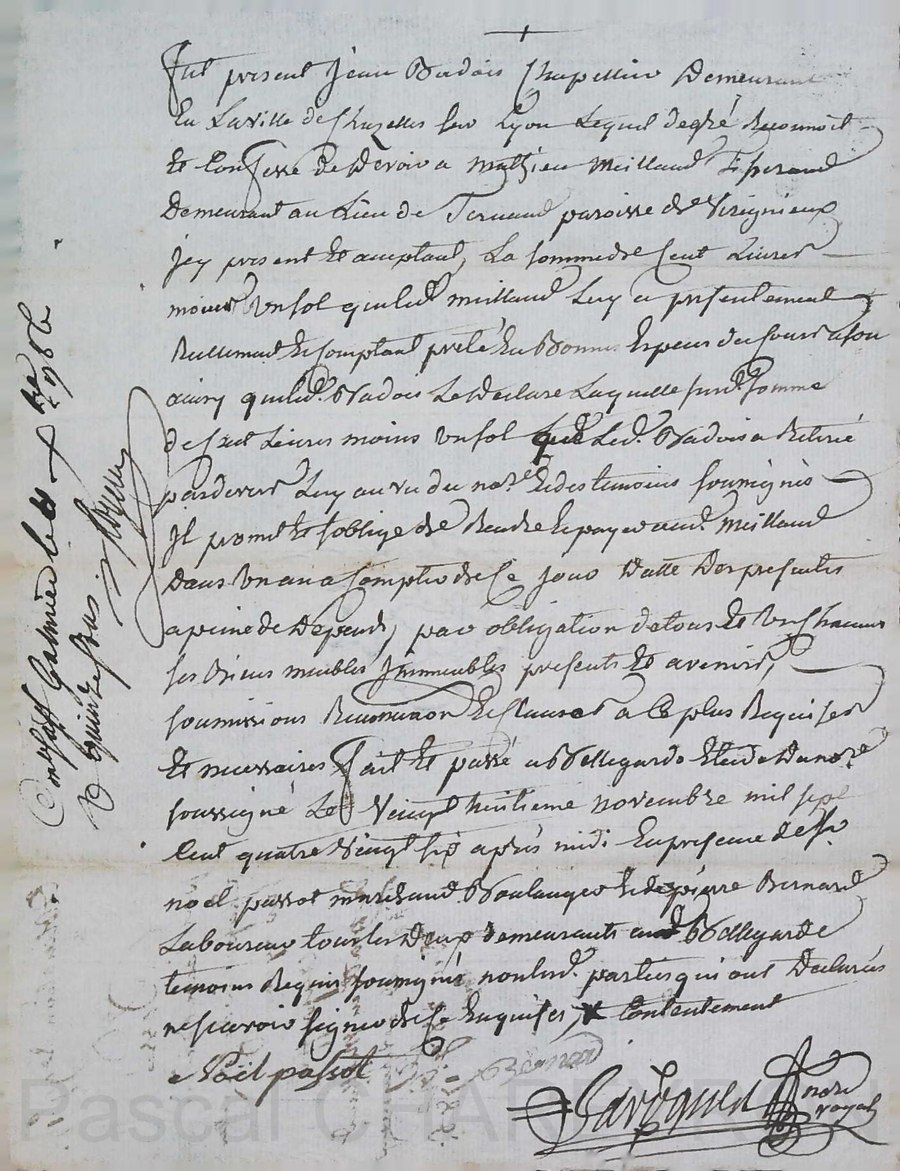 Fut present jean Badois Chapellier Demeurant
En La ville de Chazelles sur Lyon Lequel de gré Reconnoit
Et Confesse de Devoir a Mathieu Meillaud
Demeurant au Lieu de paroisse de Virignieux
jcy present Et acceptant, La somme de Cent Livres
moins Un sol que led. meillaud Luy a presentement
Reellement Et Comptant preté En Bonnes Especes du Cours a son
que led. Badois Le Declare Laquelle susd. somme
de Cent Livres moins Un sol que Led. Badois a Retiré
par devers Luy au vu du nore. Et des temoins soussignés
Jl promet Et s'oblige de Rendre Et payer aud. Meillaud
Dans Un an a Compter de Ce jour Datte Des presentes
a peine de Depends, par obligation de tous Et Un Chacuns
ses Biens meubles Jmmeubles presents Et avenirs,
soumissions Renonciaon Et Clauses a Ce plus Requises
Et necessaires fait Et passé a Bellegarde Etude Du nore.
soussigné Le Vingt huitieme novembre mil sept
Cent quatre Vingt six après midi En presence de Sr
noel passot marchand Boulanger Et de pierre Bernard
Laboureur tous les Deux demeurants aud. Bellegarde
temoins Requis soussignés non lesd. parties qui ont Declarées
ne scavoir signer de Ce Enquises, Contentement
Noël passot Bernard
nore
royal
Galmier le xbre 1786
Rx quinze sous
Pascal